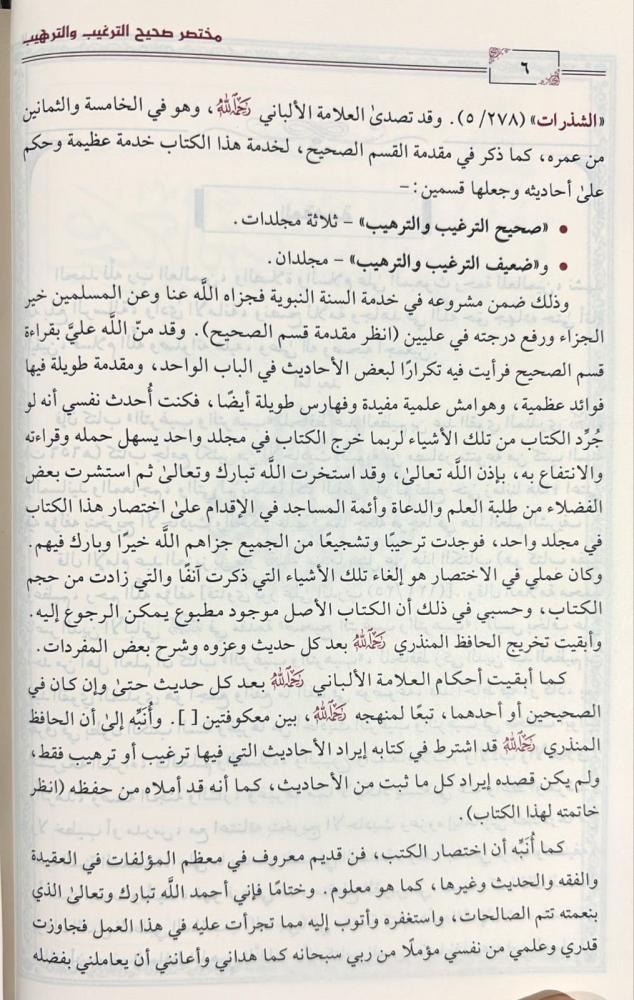 مختصر صحيح الترغيب والترهيب
٦
«الشذرات» (٢٧٨/ ٥). وقد تصدىٰ العلامة الألباني رَحِمَهُ اللَّهُ، وهو في الخامسة والثمانين
من عمره، كما ذكر في مقدمة القسم الصحيح، لخدمة هذا الكتاب خدمة عظيمة وحكم
علىٰ أحاديثه وجعلها قسمين: –
• «صحيح الترغيب والترهيب» – ثلاثة مجلدات.
• و«ضعيف الترغيب والترهيب» – مجلدان.
وذلك ضمن مشروعه في خدمة السنة النبوية فجزاه اللَّه عنا وعن المسلمين خير
الجزاء ورفع درجته في عليين (انظر مقدمة قسم الصحيح). وقد منّ اللَّه عليَّ بقراءة
قسم الصحيح فرأيت فيه تكرارًا لبعض الأحاديث في الباب الواحد، ومقدمة طويلة فيها
فوائد عظمية، وهوامش علمية مفيدة وفهارس طويلة أيضًا، فكنت أُحدث نفسي أنه لو
جُرِّد الكتاب من تلك الأشياء لربما خرج الكتاب في مجلد واحد يسهل حمله وقراءته
والانتفاع به، بإذن اللَّه تعالىٰ، وقد استخرت اللَّه تبارك وتعالىٰ ثم استشرت بعض
الفضلاء من طلبة العلم والدعاة وأئمة المساجد في الإقدام على اختصار هذا الكتاب
في مجلد واحد، فوجدت ترحيبًا وتشجيعًا من الجميع جزاهم اللَّه خيرًا وبارك فيهم.
وكان عملي في الاختصار هو إلغاء تلك الأشياء التي ذكرت آنفًا والتي زادت من حجم
الكتاب، وحسبي في ذلك أن الكتاب الأصل موجود مطبوع يمكن الرجوع إليه.
وأبقيت تخريج الحافظ المنذري رَحِمَهُ اللَّهُ بعد كل حديث وعزوه وشرح بعض المفردات.
كما أبقيت أحكام العلامة الألباني رَحِمَهُ اللَّهُ بعد كل حديث حتىٰ وإن كان في
الصحيحين أو أحدهما، تبعًا لمنهجه رَحِمَهُ اللَّهُ، بين معكوفتين [ ]. وأُنَبِّه إلىٰ أن الحافظ
المنذري رَحِمَهُ اللَّهُ قد اشترط في كتابه إيراد الأحاديث التي فيها ترغيب أو ترهيب فقط،
ولم يكن قصده إيراد كل ما ثبت من الأحاديث، كما أنه قد أملاه من حفظه (انظر
خاتمته لهذا الكتاب).
كما أُنَبِّه أن اختصار الكتب، فن قديم معروف في معظم المؤلفات في العقيدة
والفقه والحديث وغيرها، كما هو معلوم. وختامًا فإني أحمد اللَّه تبارك وتعالىٰ الذي
بنعمته تتم الصالحات، واستغفره وأتوب إليه مما تجرأت عليه في هذا العمل فجاوزت
قدري وعلمي من نفسي مؤملًا من ربي سبحانه كما هداني وأعانني أن يعاملني بفضله